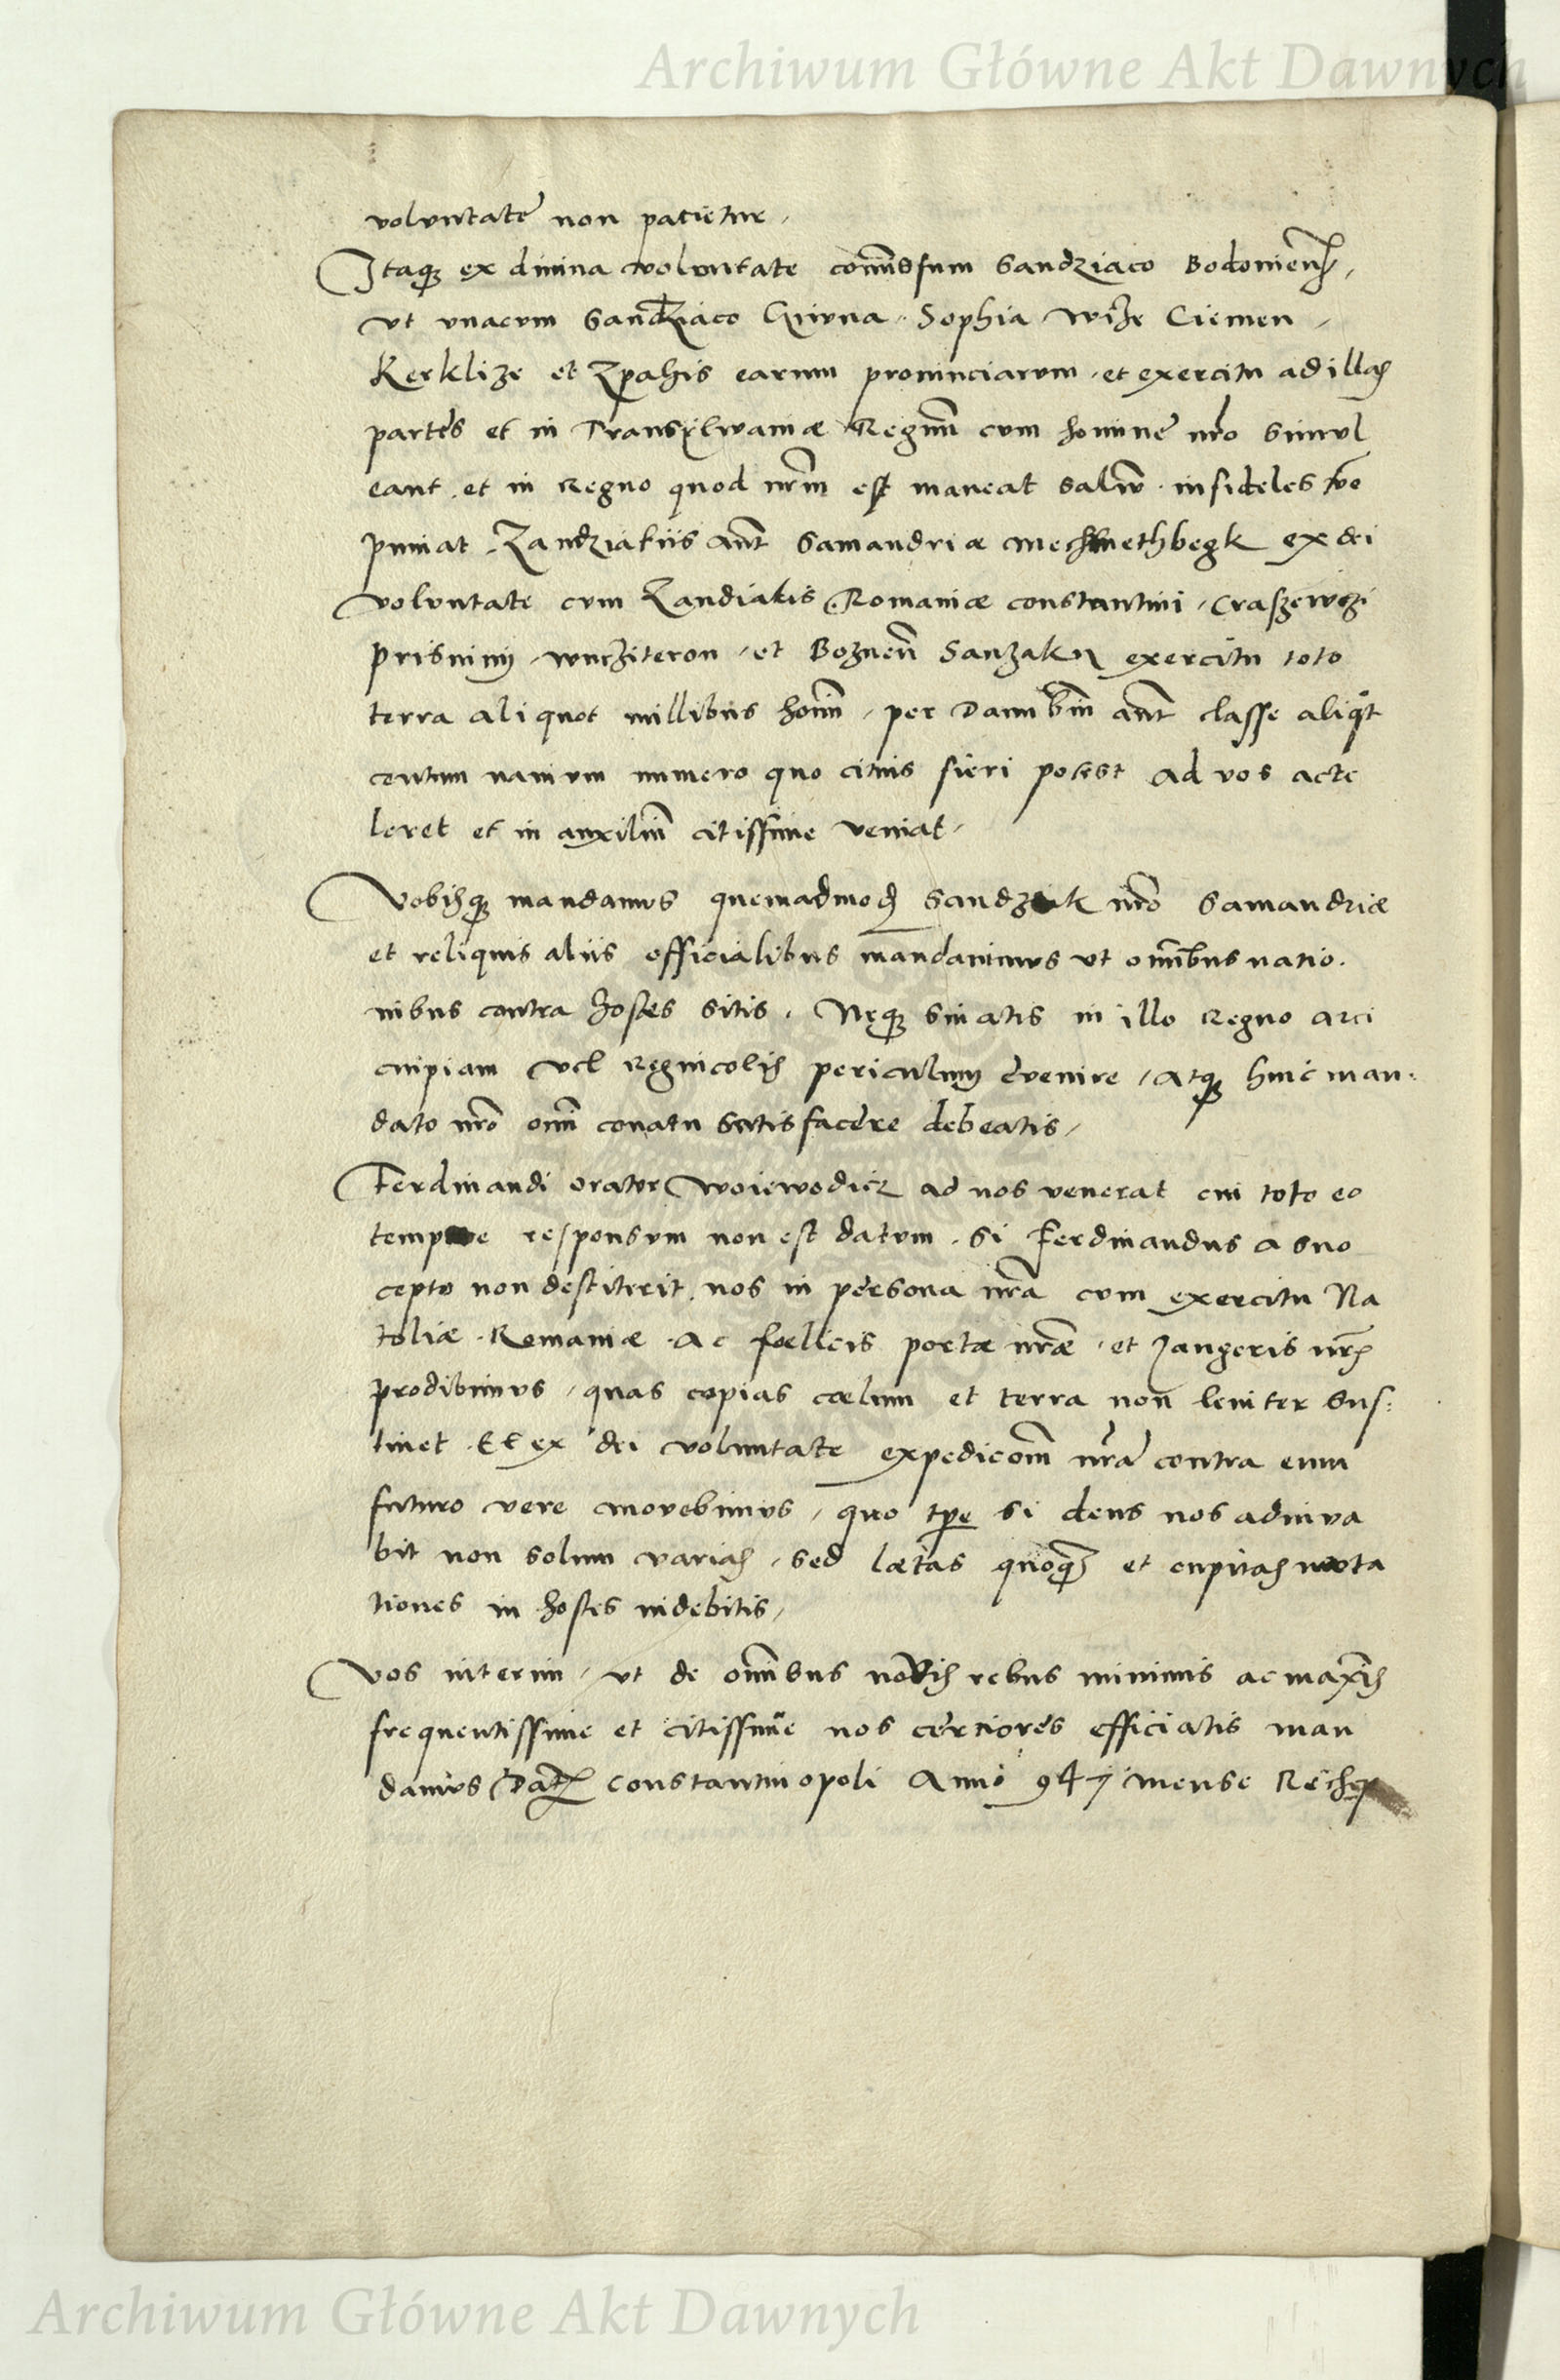 Archiwum Główne Akt Dawnych
voluntatē non patietur,
Itaqꝫ ex diuina voluntate com̄issum Sandziaco Bodonien̄,
vt vnacum Sandziaco Sophia Wize Ciemen,
Kerklize et Zpahis earum prouinciarum, et exercitu ad illas
partes et in Transylwaniæ Regnū cum homine nr̄o simul
eant, et in Regno quod nr̄m est maneat saluū. infideles vō
puniat. Zandziakiis aūt Samandriæ Mechmethbegk ex dei
voluntate cum Zandiakis Romaniæ constantini, Craszewczi
prisninÿ, wurziteron, et Boznen̄ Sanzaku exercitu toto
terra aliquot millibus homiū, per Danubiū aūt classe aliqͦt
centum nauium numero quo citius fieri potest ad vos acce
leret et in auxiliū citissime veniat,
Vobisqꝫ mandamus quemadmodū Sandzak nr̄o Samandriæ
et reliquis aliis officialibus mandauimus vt om̄ibus natio.
nibus contra hostes sitis. Neqꝫ sinatis in illo Regno arci
cuipiam vel Regnicolis periculum euenire, atqꝫ huic man:
dato nr̄o om̄i conatu satisfacere debeatis,
Ferdinandi orator Woiewodicz ad nos venerat cui toto eo
tempore responsum non est datum. Si Ferdinandus a suo
cepto non destiterit. nos in persona nr̄a cum exercitu Na
toliæ. Romaniæ. Ac fœlicis portæ nr̄æ, et Jangeris nr̄is
prodibimus, quas copias cœlum et terra non leuiter sus:
tinet. Et ex dei voluntate expedicōm nr̄ā contra eum
futuro vere mouebimus, quo tp̄e si deus nos adiuua
bit non solum varias, sed lætas quoqꝫ et cupitas muta
tiones in hostes uidebitis,
Vos interim, vt de om̄ibus novis rebus minimis ac max̄is
frequentissime et citissime nos certiores efficiatis man
damus Dat̄ Constantinopoli Anno 947 mense Rechep
Archiwum Główne Akt Dawnych